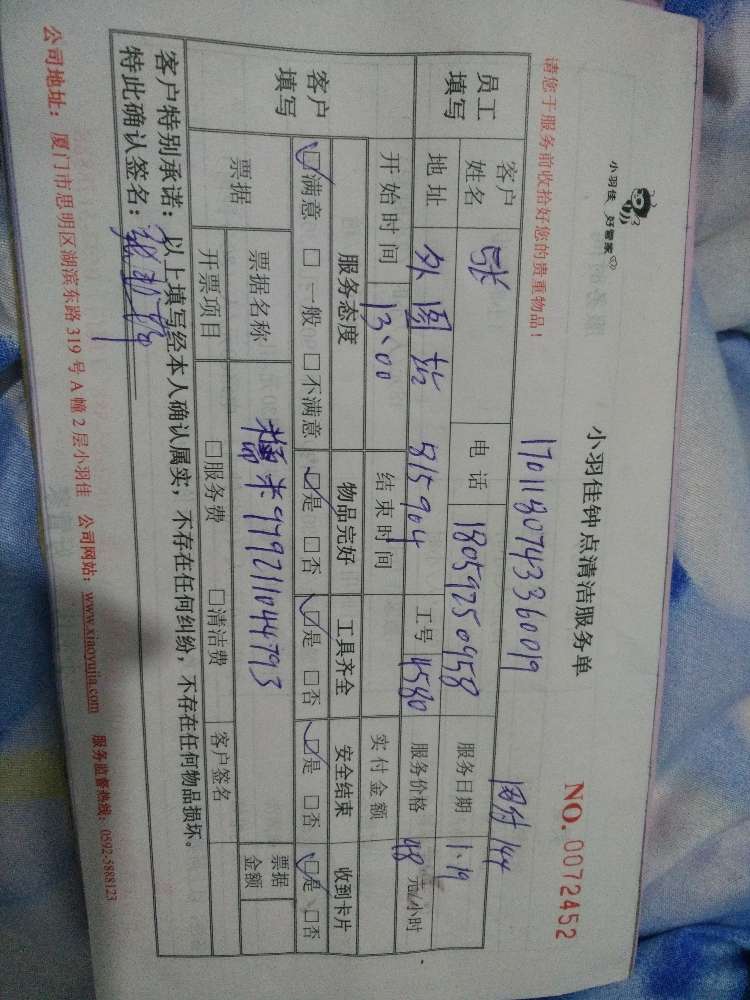 小羽佳 好管家
小羽佳钟点清洁服务单
NO. 0072452
请您于服务前收拾好您的贵重物品!
1701180743360019
144
员工填写
客户姓名 张 电话 18059250958 服务日期 1.19
地址 外图 815904 工号 4580 服务价格 48 元/小时
开始时间 13:00 结束时间 实付金额
客户填写
服务态度 物品完好 工具齐全 安全结束 收到卡片
☑满意 □一般 □不满意 ☑是 □否 ☑是 □否 ☑是 □否 ☑是 □否
票据 票据名称 糯米979211044793 票据金额
开票项目 □服务费 □清洁费 客户签名
客户特别承诺:以上填写经本人确认属实,不存在任何纠纷,不存在任何物品损坏。
特此确认签名:
公司地址: 厦门市思明区湖滨东路 319 号 A 幢 2 层小羽佳 公司网站: www.xiaoyujia.com 服务监督热线: 0592-5888123